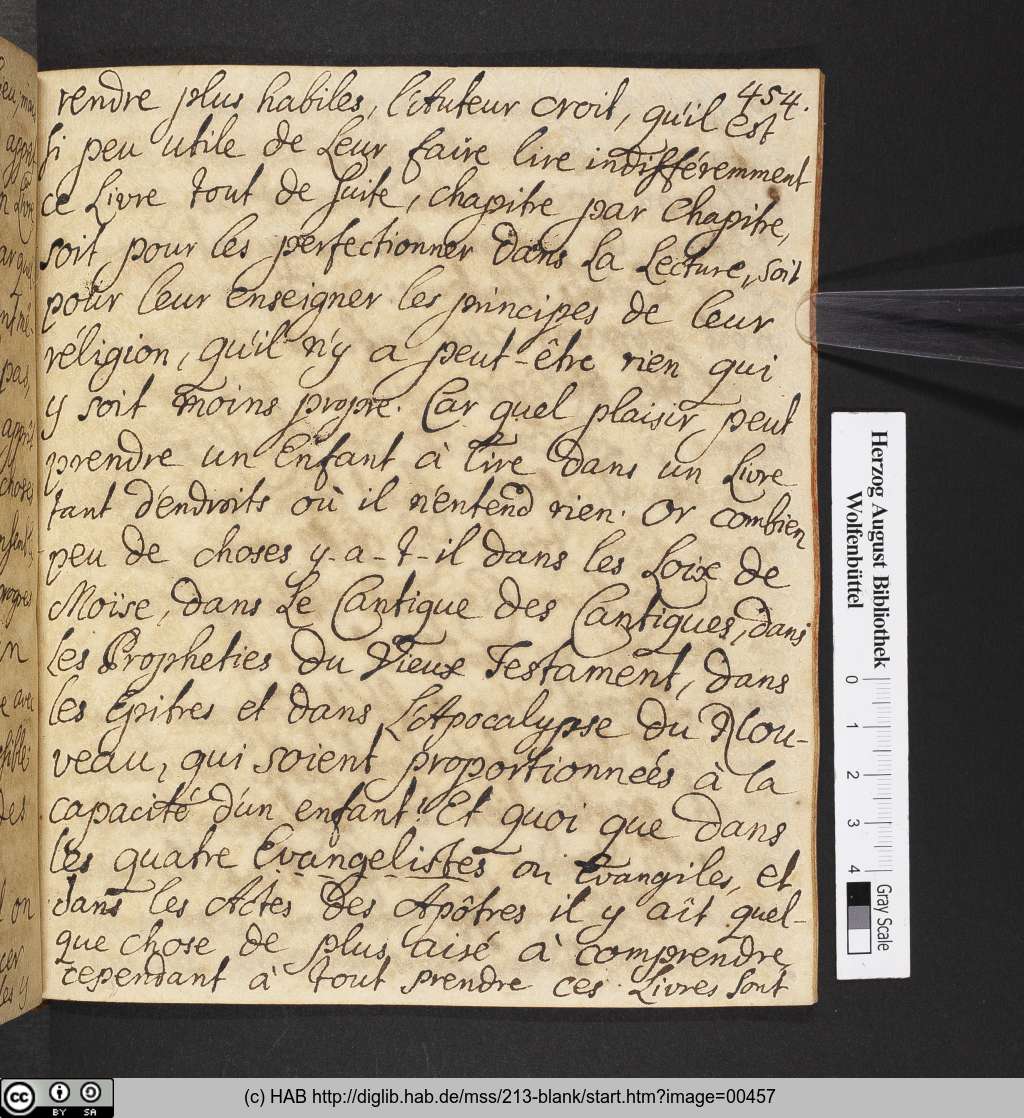 454.
rendre plus habiles, l'Auteur croit, qu'il est
si peu utile de Leur faire lire indifféremment
ce Livre tout de suite, chapitre par Chapitre,
soit pour les perfectionner dans La Lecture, soit
pour leur enseigner les principes de leur
réligion, qu'il n'y a peut-être rien qui
y soit moins propre. Car quel plaisir peut
prendre un Enfant à Lire dans un Livre
tant d'endroits où il n'entend rien. Or combien
peu de choses y-a-t-il dans les Loix de
Moïse, dans Le Cantique des Cantiques, dans
les Propheties du Vieux Testament, dans
les Epitres et dans L'Apocalypse du Nou-
veau, qui soient proportionneés à la
capacité d'un enfant! Et quoi que dans
les quatre Evangelistes ou Evangiles, et
dans les Actes des Apôtres il y aît quel-
que chose de plus aisé à comprendre,
cependant à tout prendre ces Livres sont
Herzog August Bibliothek
Wolfenbüttel
0 1 2 3 4
Gray Scale
cc BY SA
(c) HAB http://diglib.hab.de/mss/213-blank/start.htm?image=00457